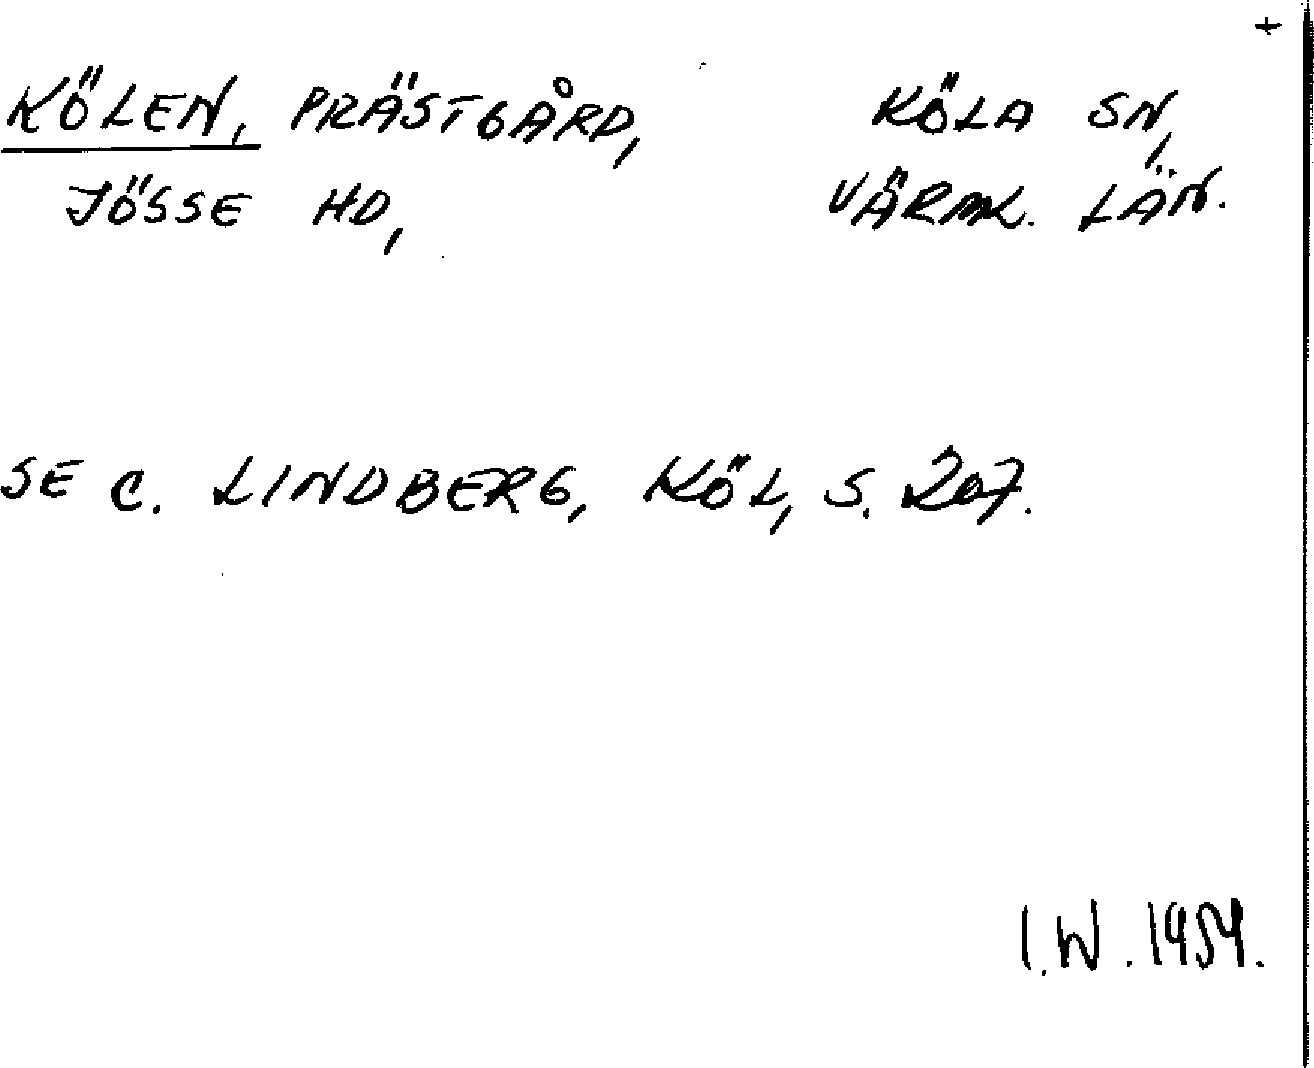 +
KÖLEN, PRÄSTGÅRD, KÖLA SN,
JÖSSE HD, VÄRML. LÄN.
SE C. LINDBERG, KÖL, S. 207.
I.W. 1954.